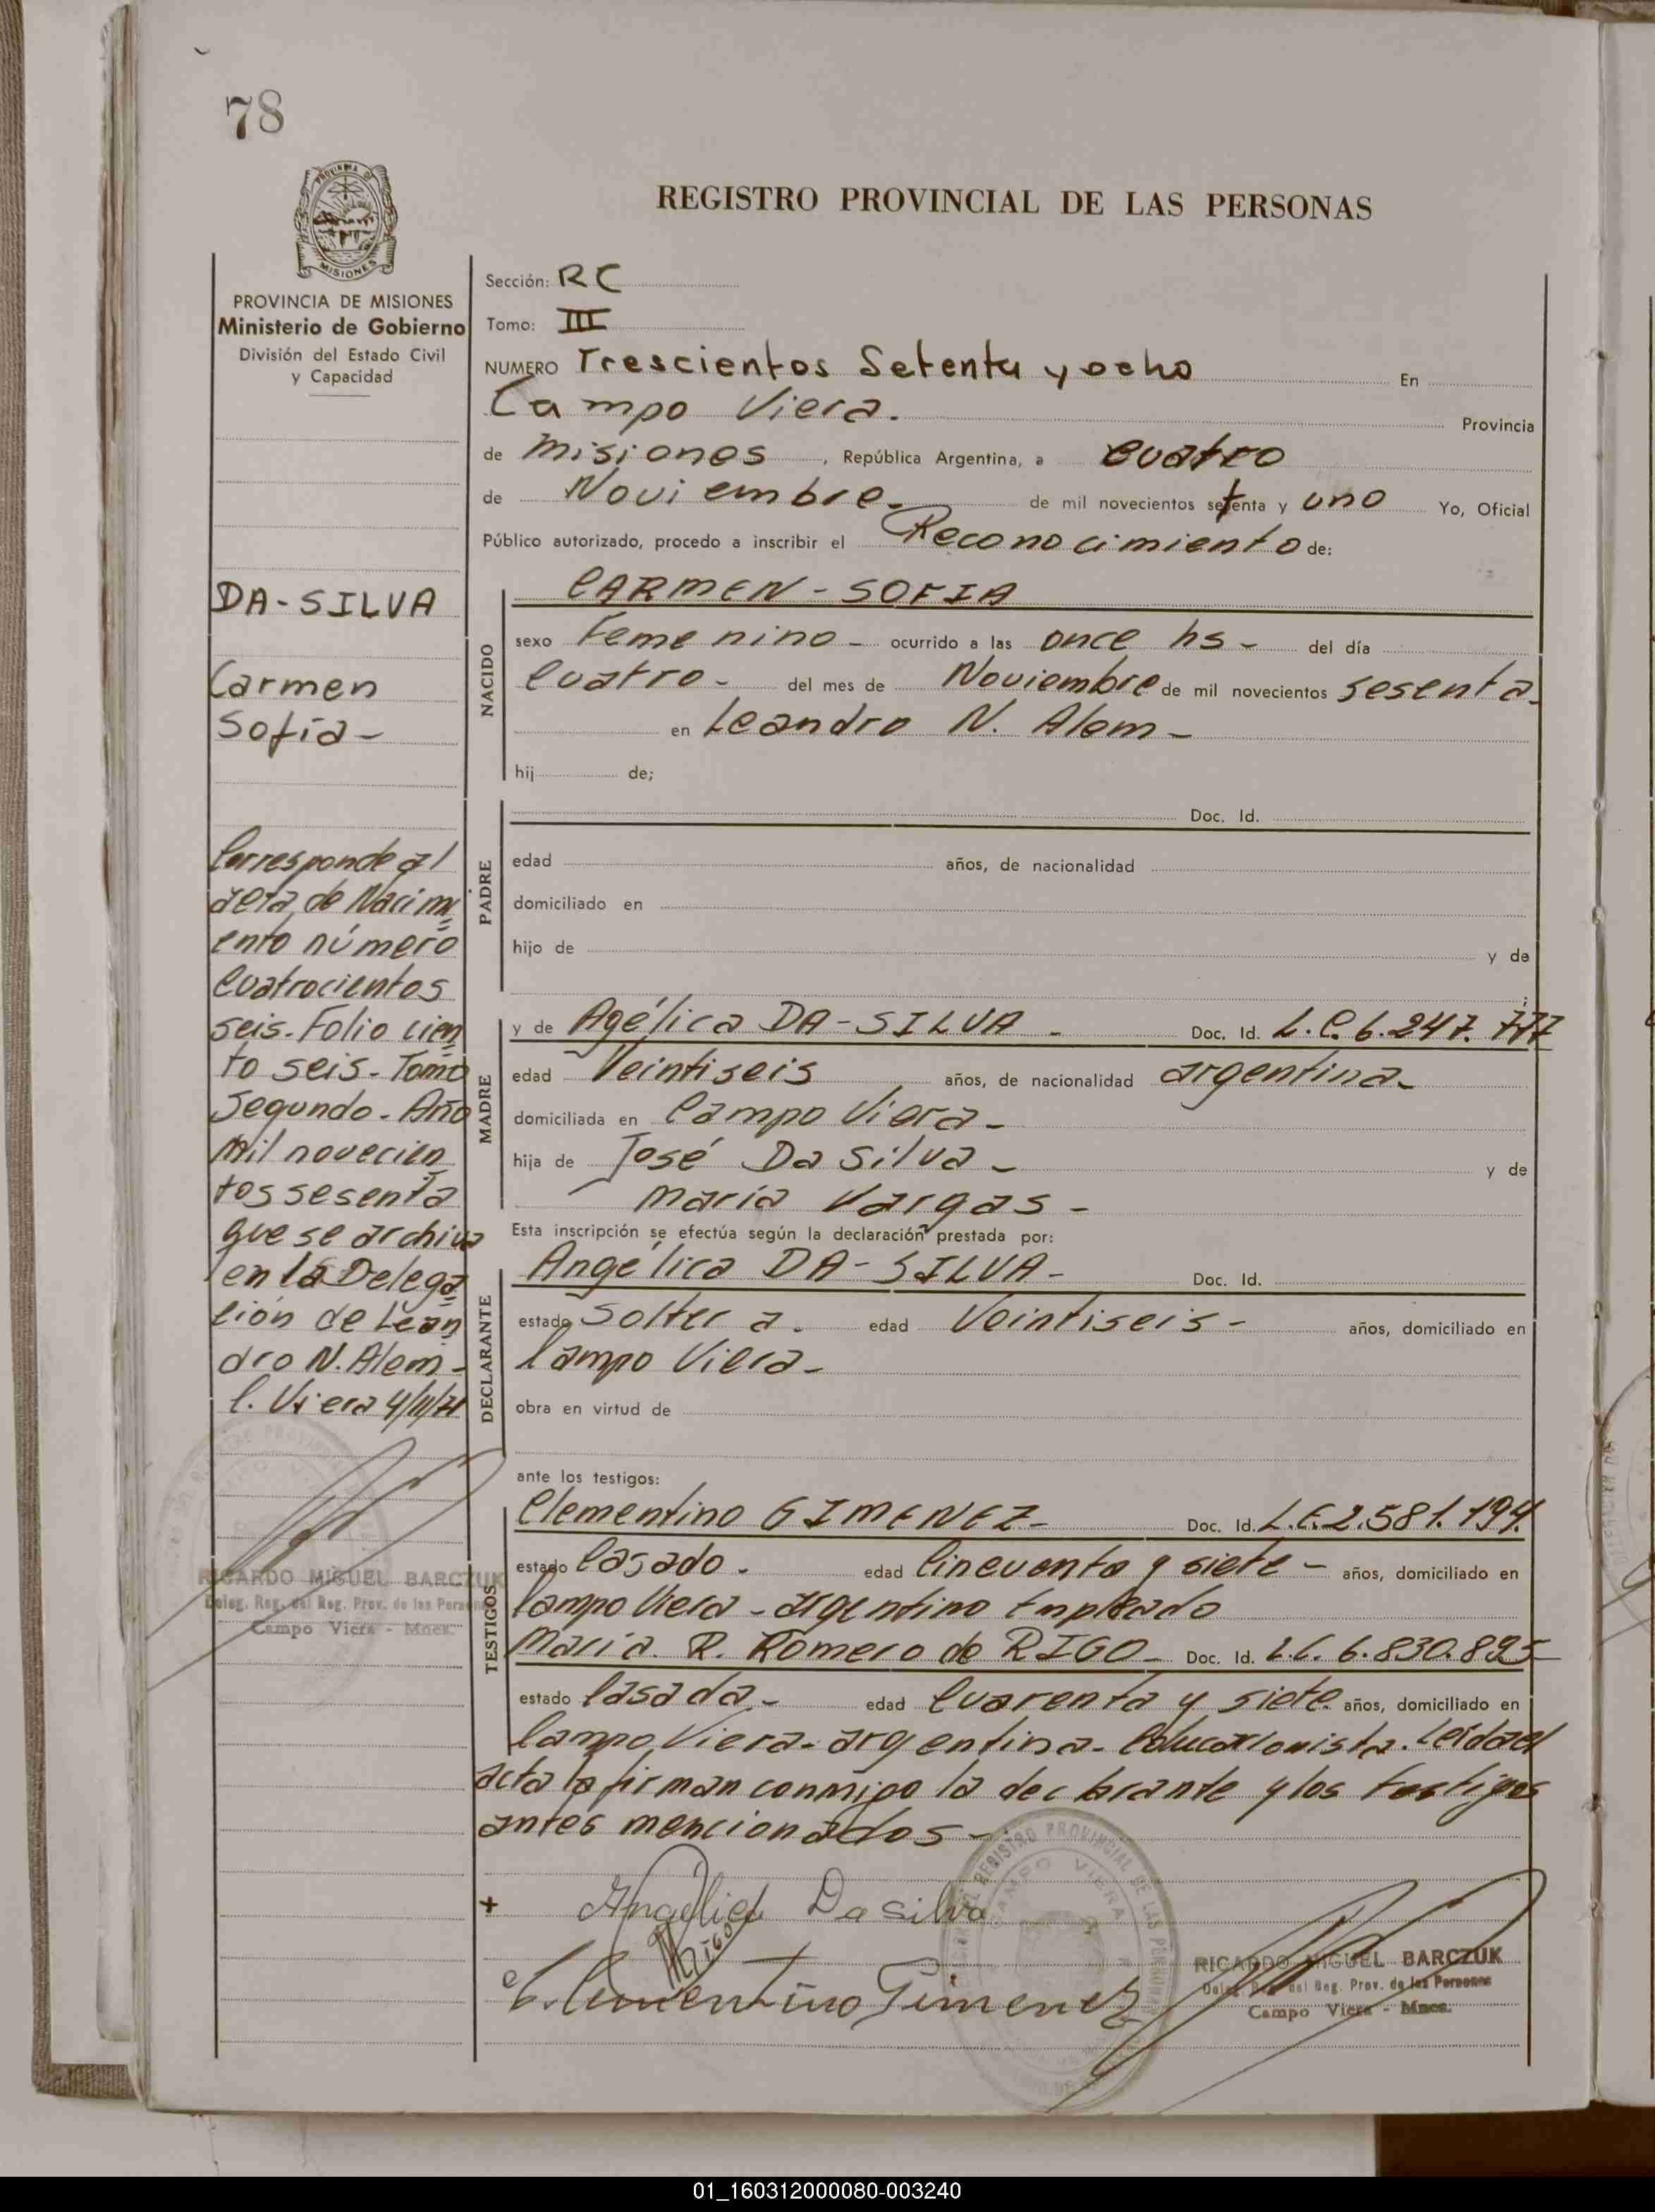 78
PROVINCIA DE
MISIONES
REGISTRO PROVINCIAL DE LAS PERSONAS
PROVINCIA DE MISIONES
Ministerio de Gobierno
División del Estado Civil
y Capacidad
DA-SILVA
Carmen
Sofía-
Corresponde al
acta de Nacimi
ento número
Cuatrocientos
seis. Folio cien
to seis. Tomo
Segundo. Año
Mil novecien
tos sesenta
que se archiva
en la Delega
ción de Lean
dro N. Alem-
C. Viera 4/11/71
RICARDO MIGUEL BARCZUK
Deleg. Reg. del Reg. Prov. de las Personas
Campo Viera - Mnes.
Sección: RC
Tomo: III
NUMERO Trescientos Setenta y ocho En
Campo Viera. Provincia
de Misiones, República Argentina, a cuatro
de Noviembre. de mil novecientos setenta y uno Yo, Oficial
Público autorizado, procedo a inscribir el Reconocimiento de:
NACIDO
CARMEN - SOFIA
sexo Femenino - ocurrido a las once hs - del día
Cuatro - del mes de Noviembre de mil novecientos sesenta.
en Leandro N. Alem -
hij de;
PADRE
Doc. Id.
edad años, de nacionalidad
domiciliado en
hijo de y de
MADRE
y de Agélica DA-SILVA - Doc. Id. L.C. 6.247.777
edad Veintiseis años, de nacionalidad argentina-
domiciliada en Campo Viera-
hija de José Da Silva - y de
María Vargas -
Esta inscripción se efectúa según la declaración prestada por:
DECLARANTE
Angélica DA-SILVA - Doc. Id.
estado Soltera. edad Veintiseis - años, domiciliado en
Campo Viera-
obra en virtud de
ante los testigos:
TESTIGOS
Clementino GIMENEZ - Doc. Id. L.E. 2.581.194.
estado Casado. edad Cincuenta y siete - años, domiciliado en
Campo Viera - argentino Empleado
Maria R. Romero de RIGO - Doc. Id. L.C. 6.830.895-
estado Casada.- edad Cuarenta y siete. años, domiciliado en
Campo Viera- argentina- Educacionista. Leída el
acta la firman conmigo la declarante y los testigos
antes mencionados-
+ Angélica Da silva
MRigo
Clementino Gimenez
REGISTRO PROVINCIAL DE LAS PERSONAS
CAMPO VIERA
RICARDO MIGUEL BARCZUK
Deleg. Reg. del Reg. Prov. de las Personas
Campo Viera - Mnes.
01_160312000080-003240